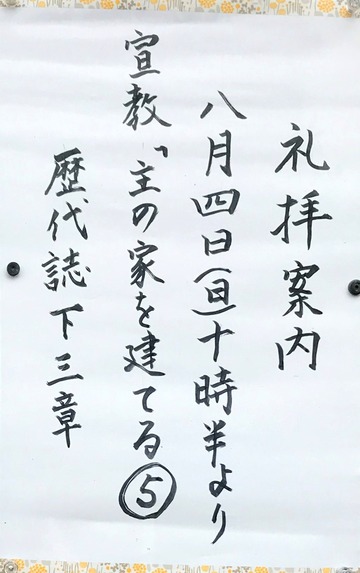 礼拝案内
八月四日(日)十時半より
宣教「主の家を建てる⑤
歴代誌下三章